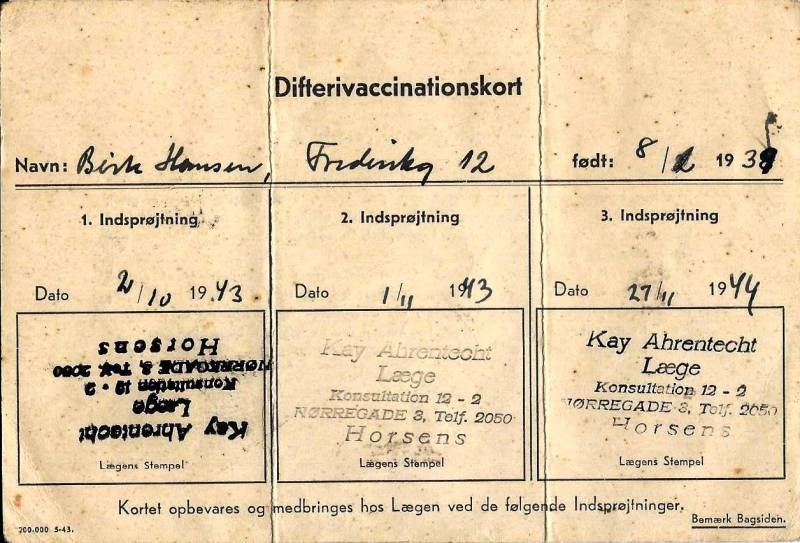 Difterivaccinationskort
Navn: Birk Hansen, 12 født: 8/ 193
1. Indsprøjtning 2. Indsprøjtning 3. Indsprøjtning
Dato 2/10 1943 Dato 1/11 1943 Dato 27/11 1944
Kay Ahrentecht
Læge
Konsultation 12 - 2
NØRREGADE 3, Telf. 2050
Horsens
Lægens Stempel
Kay Ahrentecht
Læge
Konsultation 12 - 2
NØRREGADE 3, Telf. 2050
Horsens
Lægens Stempel
Kay Ahrentecht
Læge
Konsultation 12 - 2
NØRREGADE 3, Telf. 2050
Horsens
Lægens Stempel
Kortet opbevares og medbringes hos Lægen ved de følgende Indsprøjtninger.
200.000 5-43.
Bemærk Bagsiden.